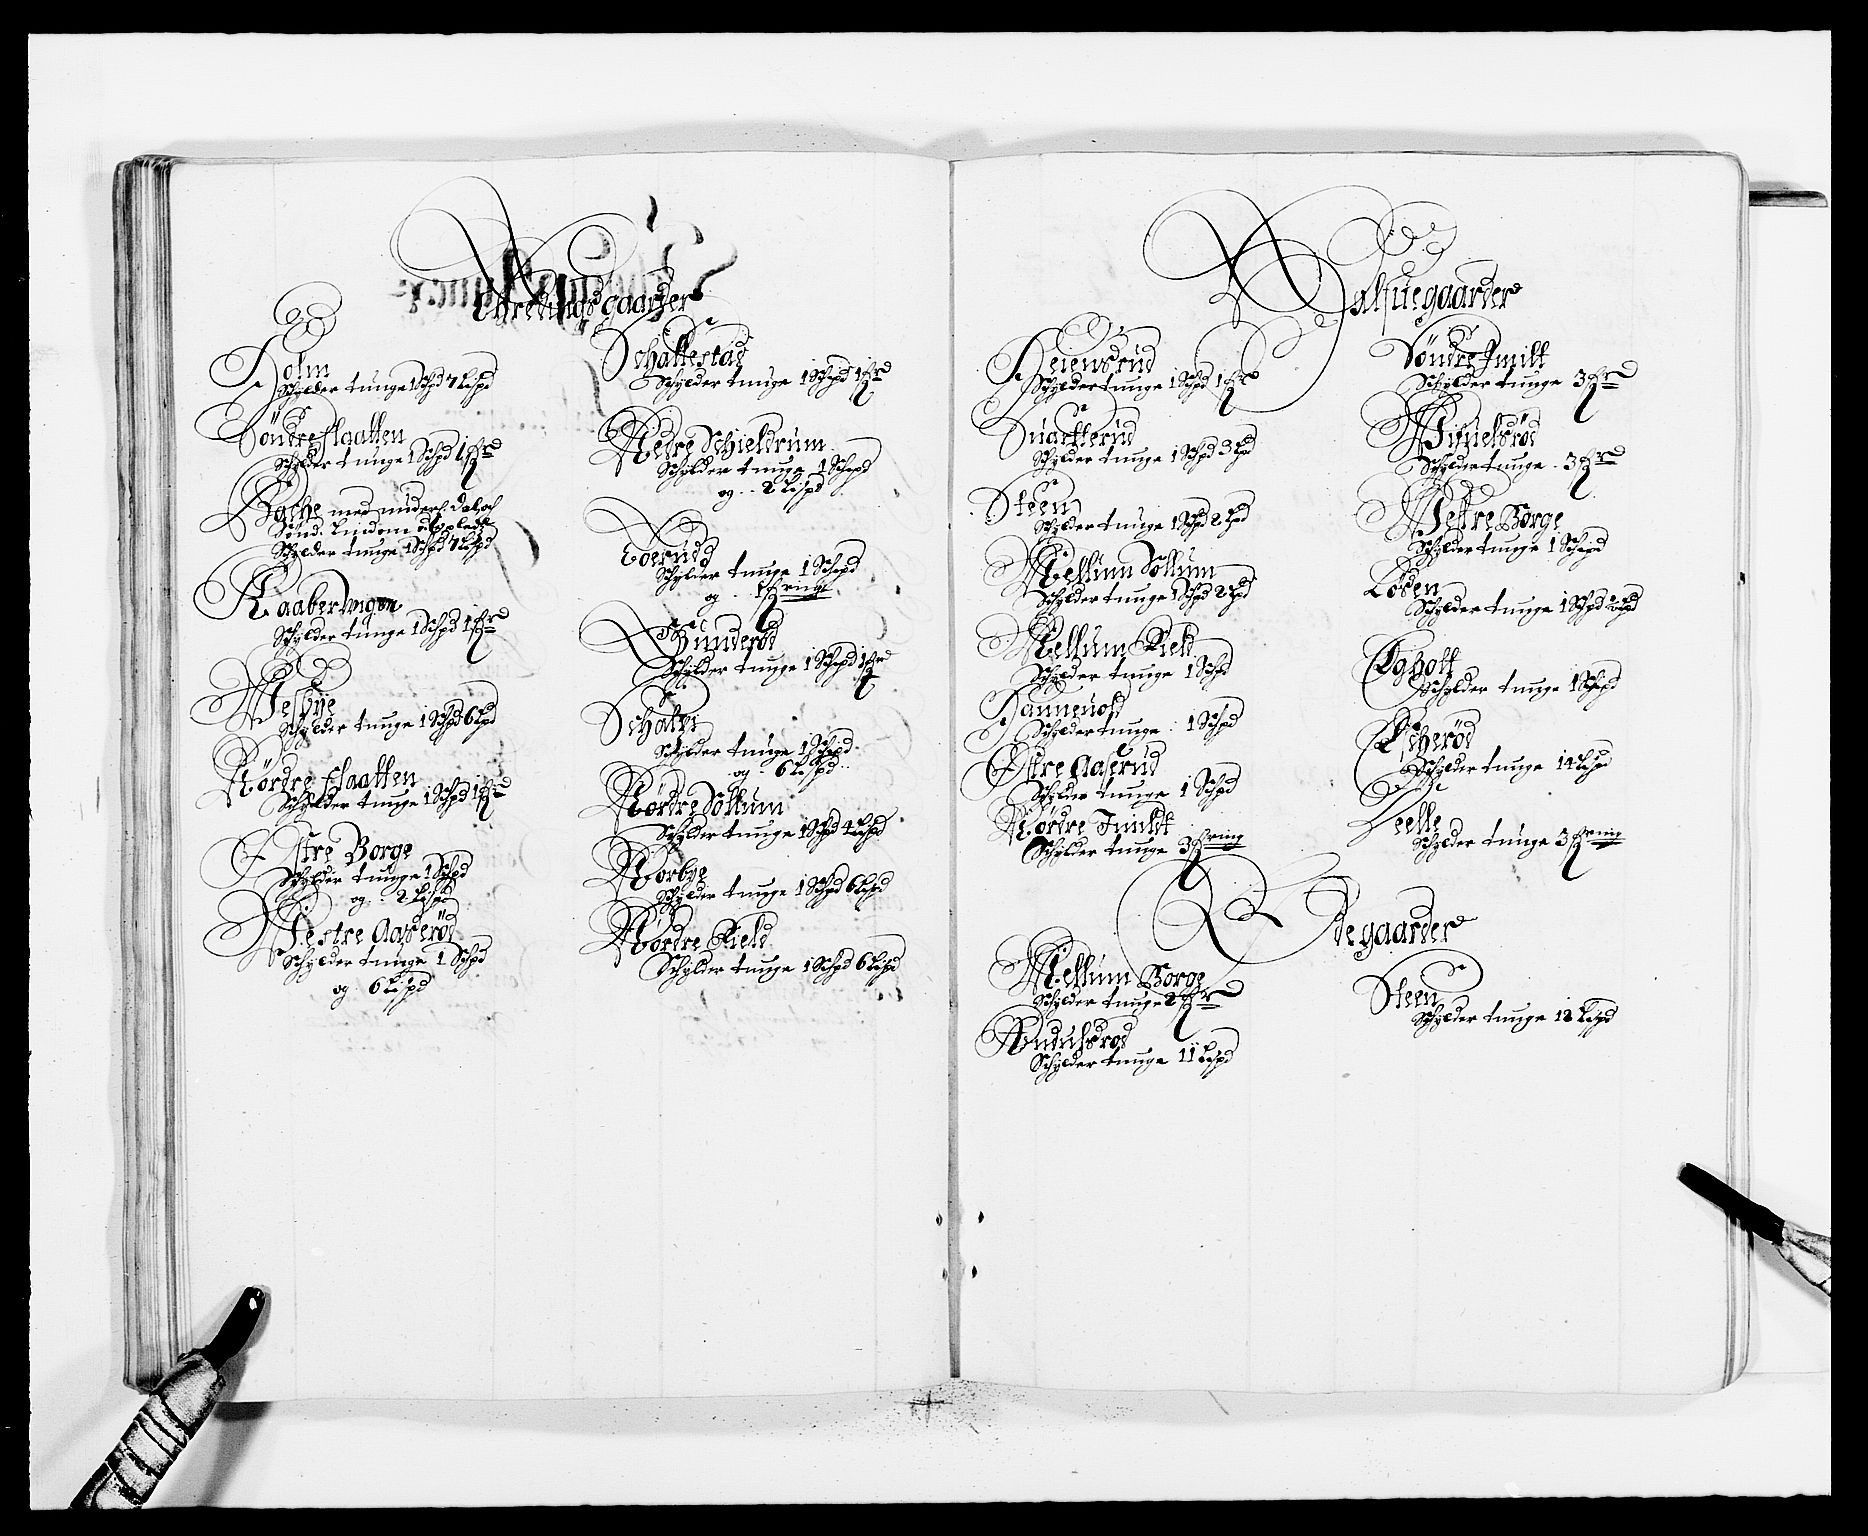 Holm
Schylder tunge 1 Schpd 7 Lispd
Söndre Flaatten
Schylder tunge 1 Schpd 1 Fr
Bache med underl. dal och
Sönd. Lindom ödeplads
Schylder tunge 1 Schpd 7 Lispd
Kaabervigen
Schylder tunge 1 Schpd 1 Fr
Westbye
Schylder tunge 1 Schpd 6 Lpd
Nördre flaatten
Schylder tunge 1 Schpd 1 Fr
Östre Borge
Schylder tunge 1 Schpd
og .. 2 Lispd
Westre Aaseröd
Schylder tunge 1 Schpd
og 6 Lispd
Schaltestad
Schylder tunge 1 Schpd 1 Fr
Nedre Schieldrum
Schylder tunge 1 Schpd
og .. 2 Lispd
Schylder tunge 1 Schpd
og .. 1 Fring
Gunderöd
Schylder tunge 1 Schpd 1 Fr
Schalvi
Schylder tunge 1 Schpd
og .. 6 Lispd
Nördre Sollum
Schylder tunge 1 Schpd 4 Lispd
Norbye
Schylder tunge 1 Schpd 6 Lispd
Nordre Kield
Schylder tunge 1 Schpd 6 Lispd
Halfuegaarder
Heiensrud
Schylder tunge 1 Schpd 1 Fr
Suartterud
Schylder tunge 1 Schpd 3 Lpd
Steen
Schylder tunge 1 Schpd 2 Lpd
Mellum Sollum
Schylder tunge 1 Schpd 2 Lpd
Mellum Kield
Schylder tunge 1 Schpd
Hannevold
Schylder tunge . 1 Schpd
Östre Aaserud
Schylder tunge 1 Schpd
Nördre Jmildt
Schylder tunge 3 Fring
Söndre Jmilt
Schylder tunge 3 Fr
Schylder tunge . 3 Fr
Westre Borge
Schylder tunge 1 Schpd
Löken
Schylder tunge 1 Schpd 2 Lpd
Egholt
Schylder tunge 1 Schpd
Escheröd
Schylder tunge 14 Lispd
Schylder tunge 3 Fring
Ödegaarder
Mellum Borge
Schylder tunge 2 Fr
Schylder tunge 11 Lispd
Steen
Schylder tunge 12 Lispd